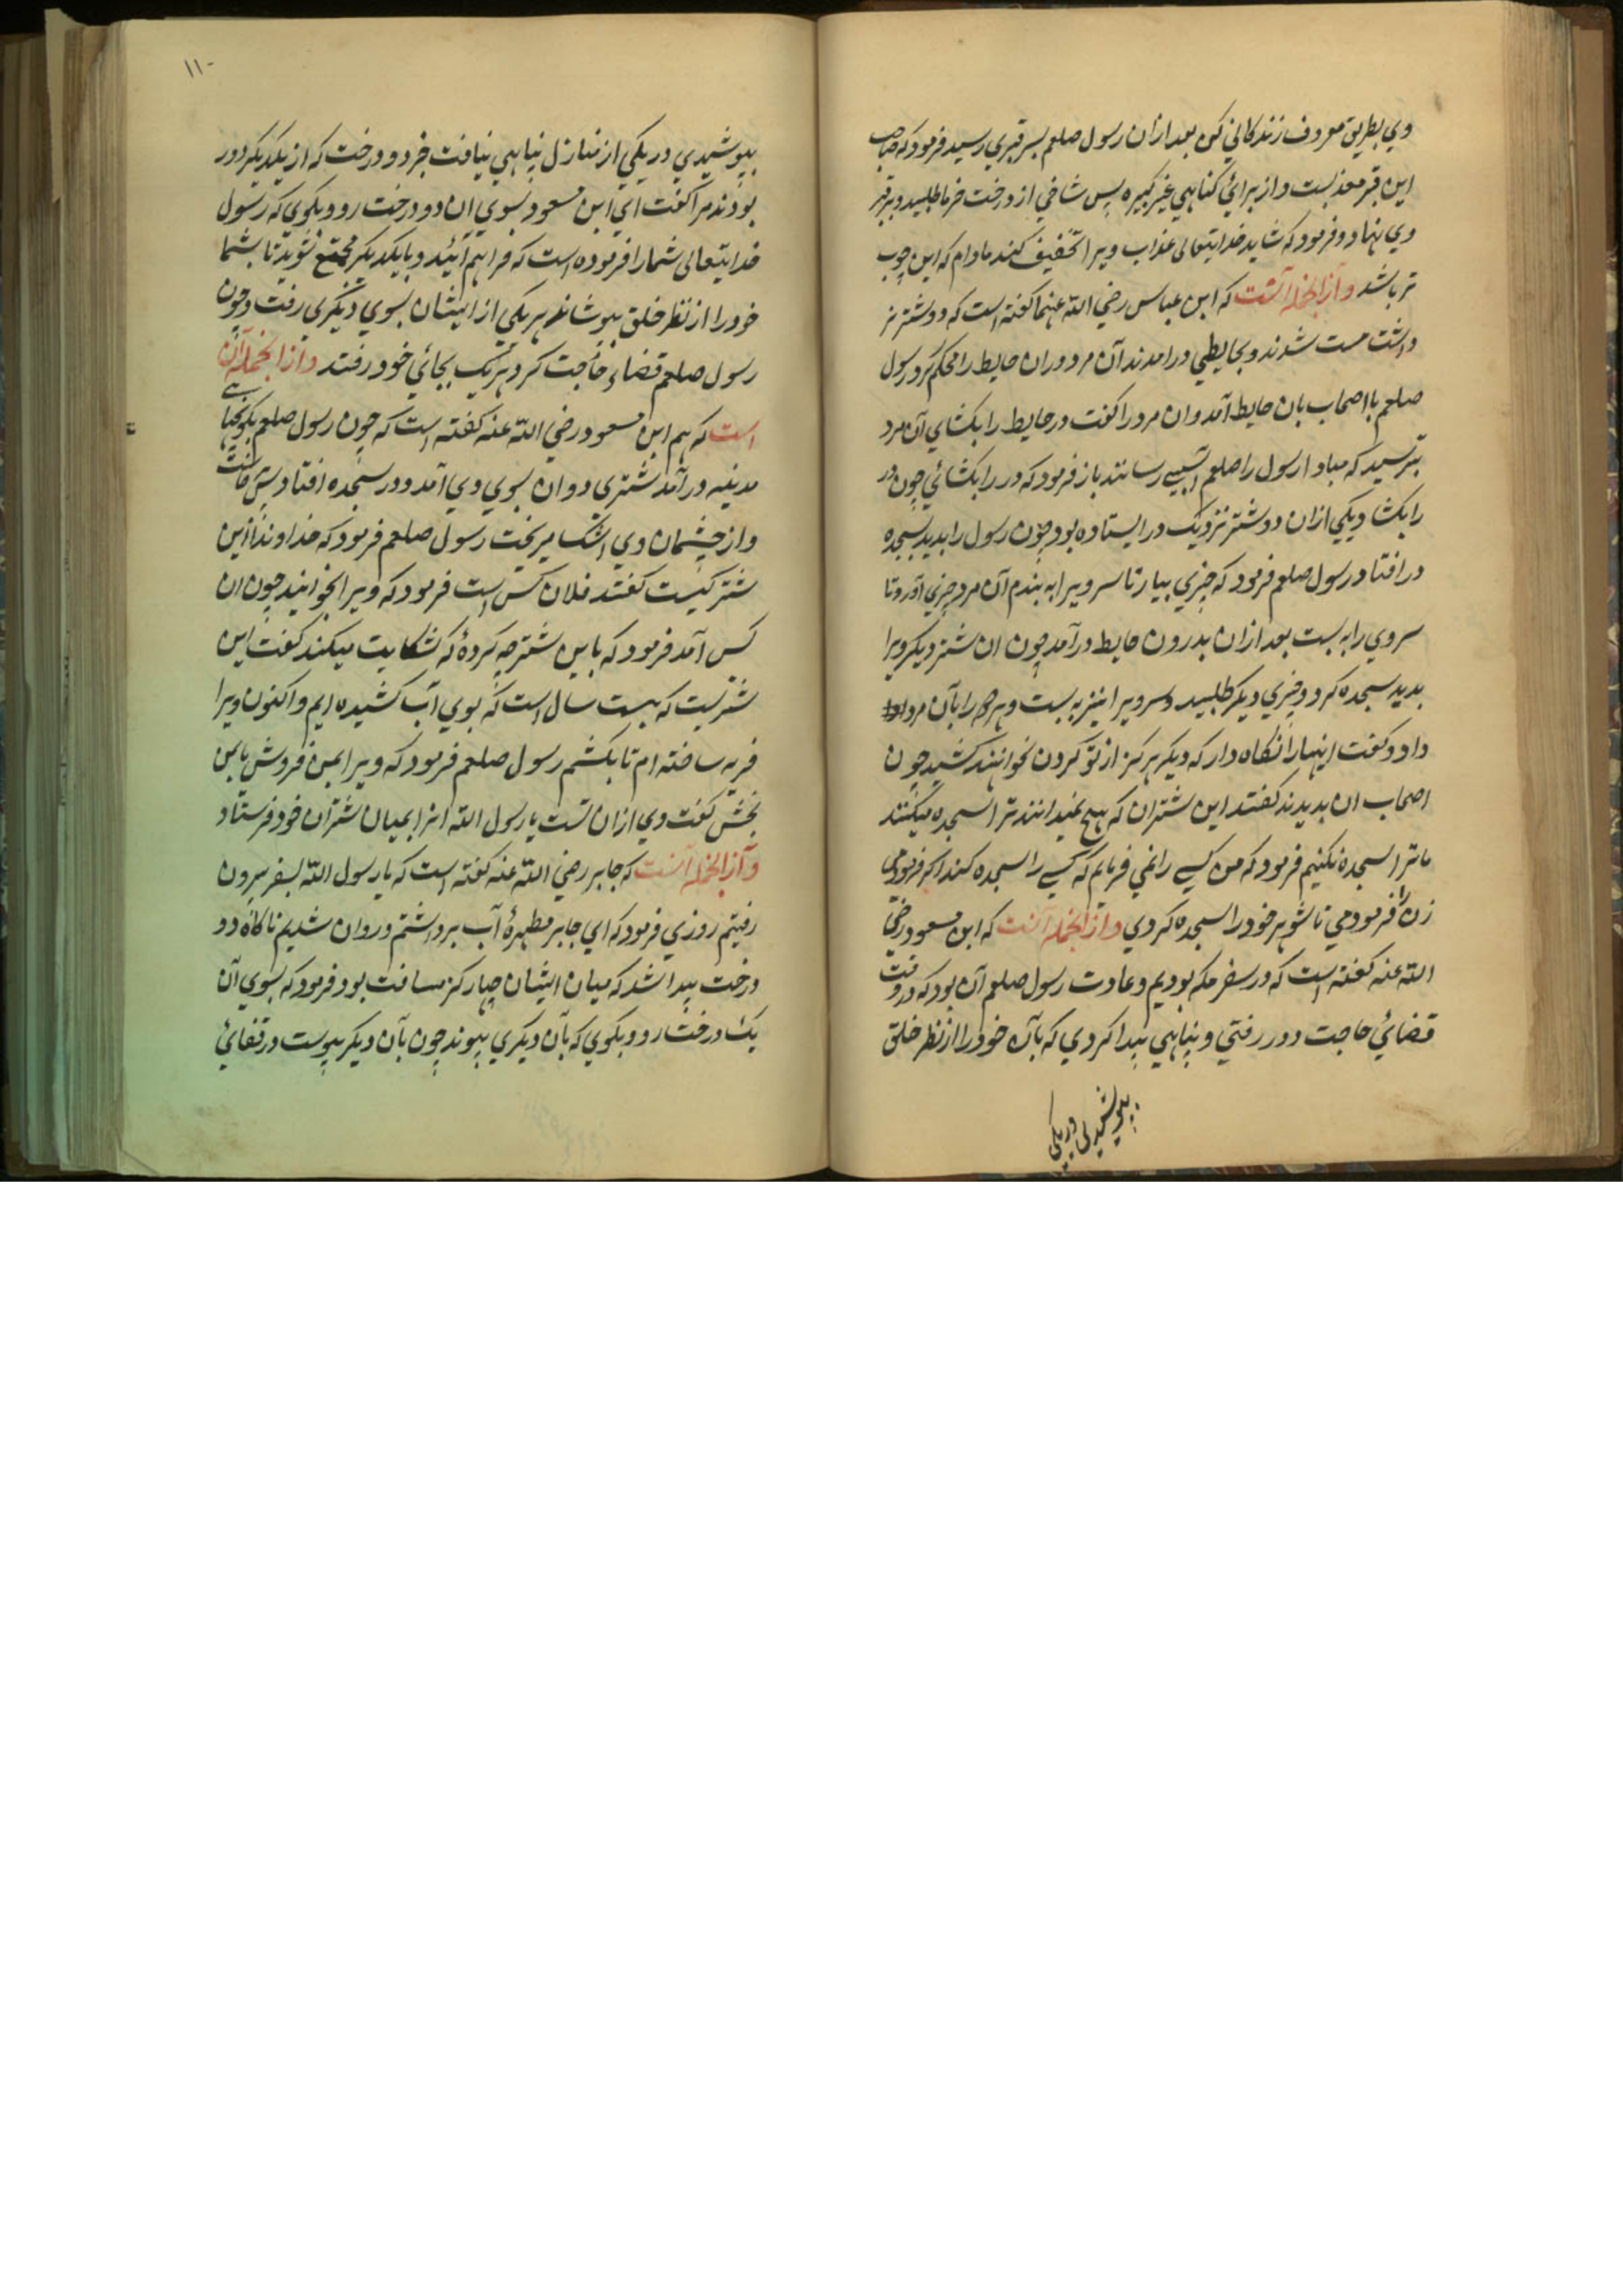 وي بطريق معروف زندكاني كن بعد ازان رسول صلعم بسر قبري رسيد فرمود كه صاحب
اين قبر معذبست و از براي كناهي غير كبيره پس شاخي از درخت خرما طلبيد و بر قبر
وي نهاد و فرمود كه شايد خدايتعالى عذاب ويرا تخفيف كند مادام كه اين چوب
تر باشد و از انجمله آنست كه ابن عباس رضي الله عنهما كفته است كه دو شتر نر
داشت مست شدند و بحايطي درامدند آن مرد دران حايط را محكم كرد رسول
صلعم با اصحاب بان حايط آمد و ان مرد را كفت در حايط را بكشاي آن مرد
بترسيد كه مبادا رسول را صلعم آسيبي رسانند باز فرمود كه در را بكشائي چون در
را بكشاد يكي ازان دو شتر نزديك در ايستاده بود چون رسول را بديد بسجده
در افتاد رسول صلعم فرمود كه چيزي بيار تا سر ويرا به بندم آن مرد چيزي آورد تا
سر وي را به بست بعد ازان بدرون حايط درآمد چون ان شتر ديكر ويرا
بديد سجده كرد و چيزي ديكر طلبيد و سر ويرا نيز به بست و هر دو را بآن مرد
داد و كفت اينهارا نكاه دار كه ديكر هركز از تو كردن نخواهند كشيد چون
اصحاب ان بديدند كفتند اين شتران كه هيچ نميدانند ترا سجده ميكنند
ما ترا سجده نكنيم فرمود كه من كسي را نمي فرمايم كه كسي را سجده كند اكر فرمودمي
زن را فرمودمي تا شوهر خود را سجده كردي و از انجمله آنست كه ابن مسعود رضي
الله عنه كفته است كه در سفر مكه بوديم و عادت رسول صلعم آن بود كه در وقت
قضائي حاجت دور رفتي و پناهي پيدا كردي كه بآن خود را از نظر خلق
بپوشيدي در يكي
١١٠
بپوشيدي در يكي از منازل پناهي نيافت جز دو درخت كه از يكديكر دور
بودند مرا كفت اي ابن مسعود بسوي ان دو درخت رو و بكوي كه رسول
خدايتعالى شما را فرموده است كه فراهم آئيد و با يكديكر مجتمع شويد تا بشما
خود را از نظر خلق بپوشانم هر يكي از ايشان بسوي ديكري رفت و چون
رسول صلعم قضاء حاجت كرد هر يك بجائي خود رفتند و از انجمله آن
است كه هم ابن مسعود رضي الله عنه كفته است كه چون رسول صلعم بكوچهاي
مدينه درآمد شتري دوان بسوي وي آمد و در سجده افتاد پس برخاست
و از چشمان وي اشك ميريخت رسول صلعم فرمود كه خداوند اين
شتر كيست كفتند فلان كس است فرمود كه ويرا بخوانيد چون ان
كس آمد فرمود كه با اين شتر چه كردهٔ كه شكايت ميكند كفت اين
شتريست كه بيست سال است كه بوي آب كشيده ايم و اكنون ويرا
فربه ساخته ام تا بكشم رسول صلعم فرمود كه ويرا بمن فروش يا بمن
بخش كفت وي ازان تست يا رسول الله انرا بميان شتران خود فرستاد
و از انجمله آنست كه جابر رضي الله عنه كفته است كه با رسول الله بسفر بيرون
رفتيم روزي فرمود كه اي جابر مطهرهٔ آب برداشتم و روان شديم ناكاه دو
درخت پيدا شد كه ميان ايشان چهار كز مسافت بود فرمود كه بسوي آن
يك درخت رو و بكوي كه بآن ديكري پيوند چون بآن ديكر پيوست در قفائي